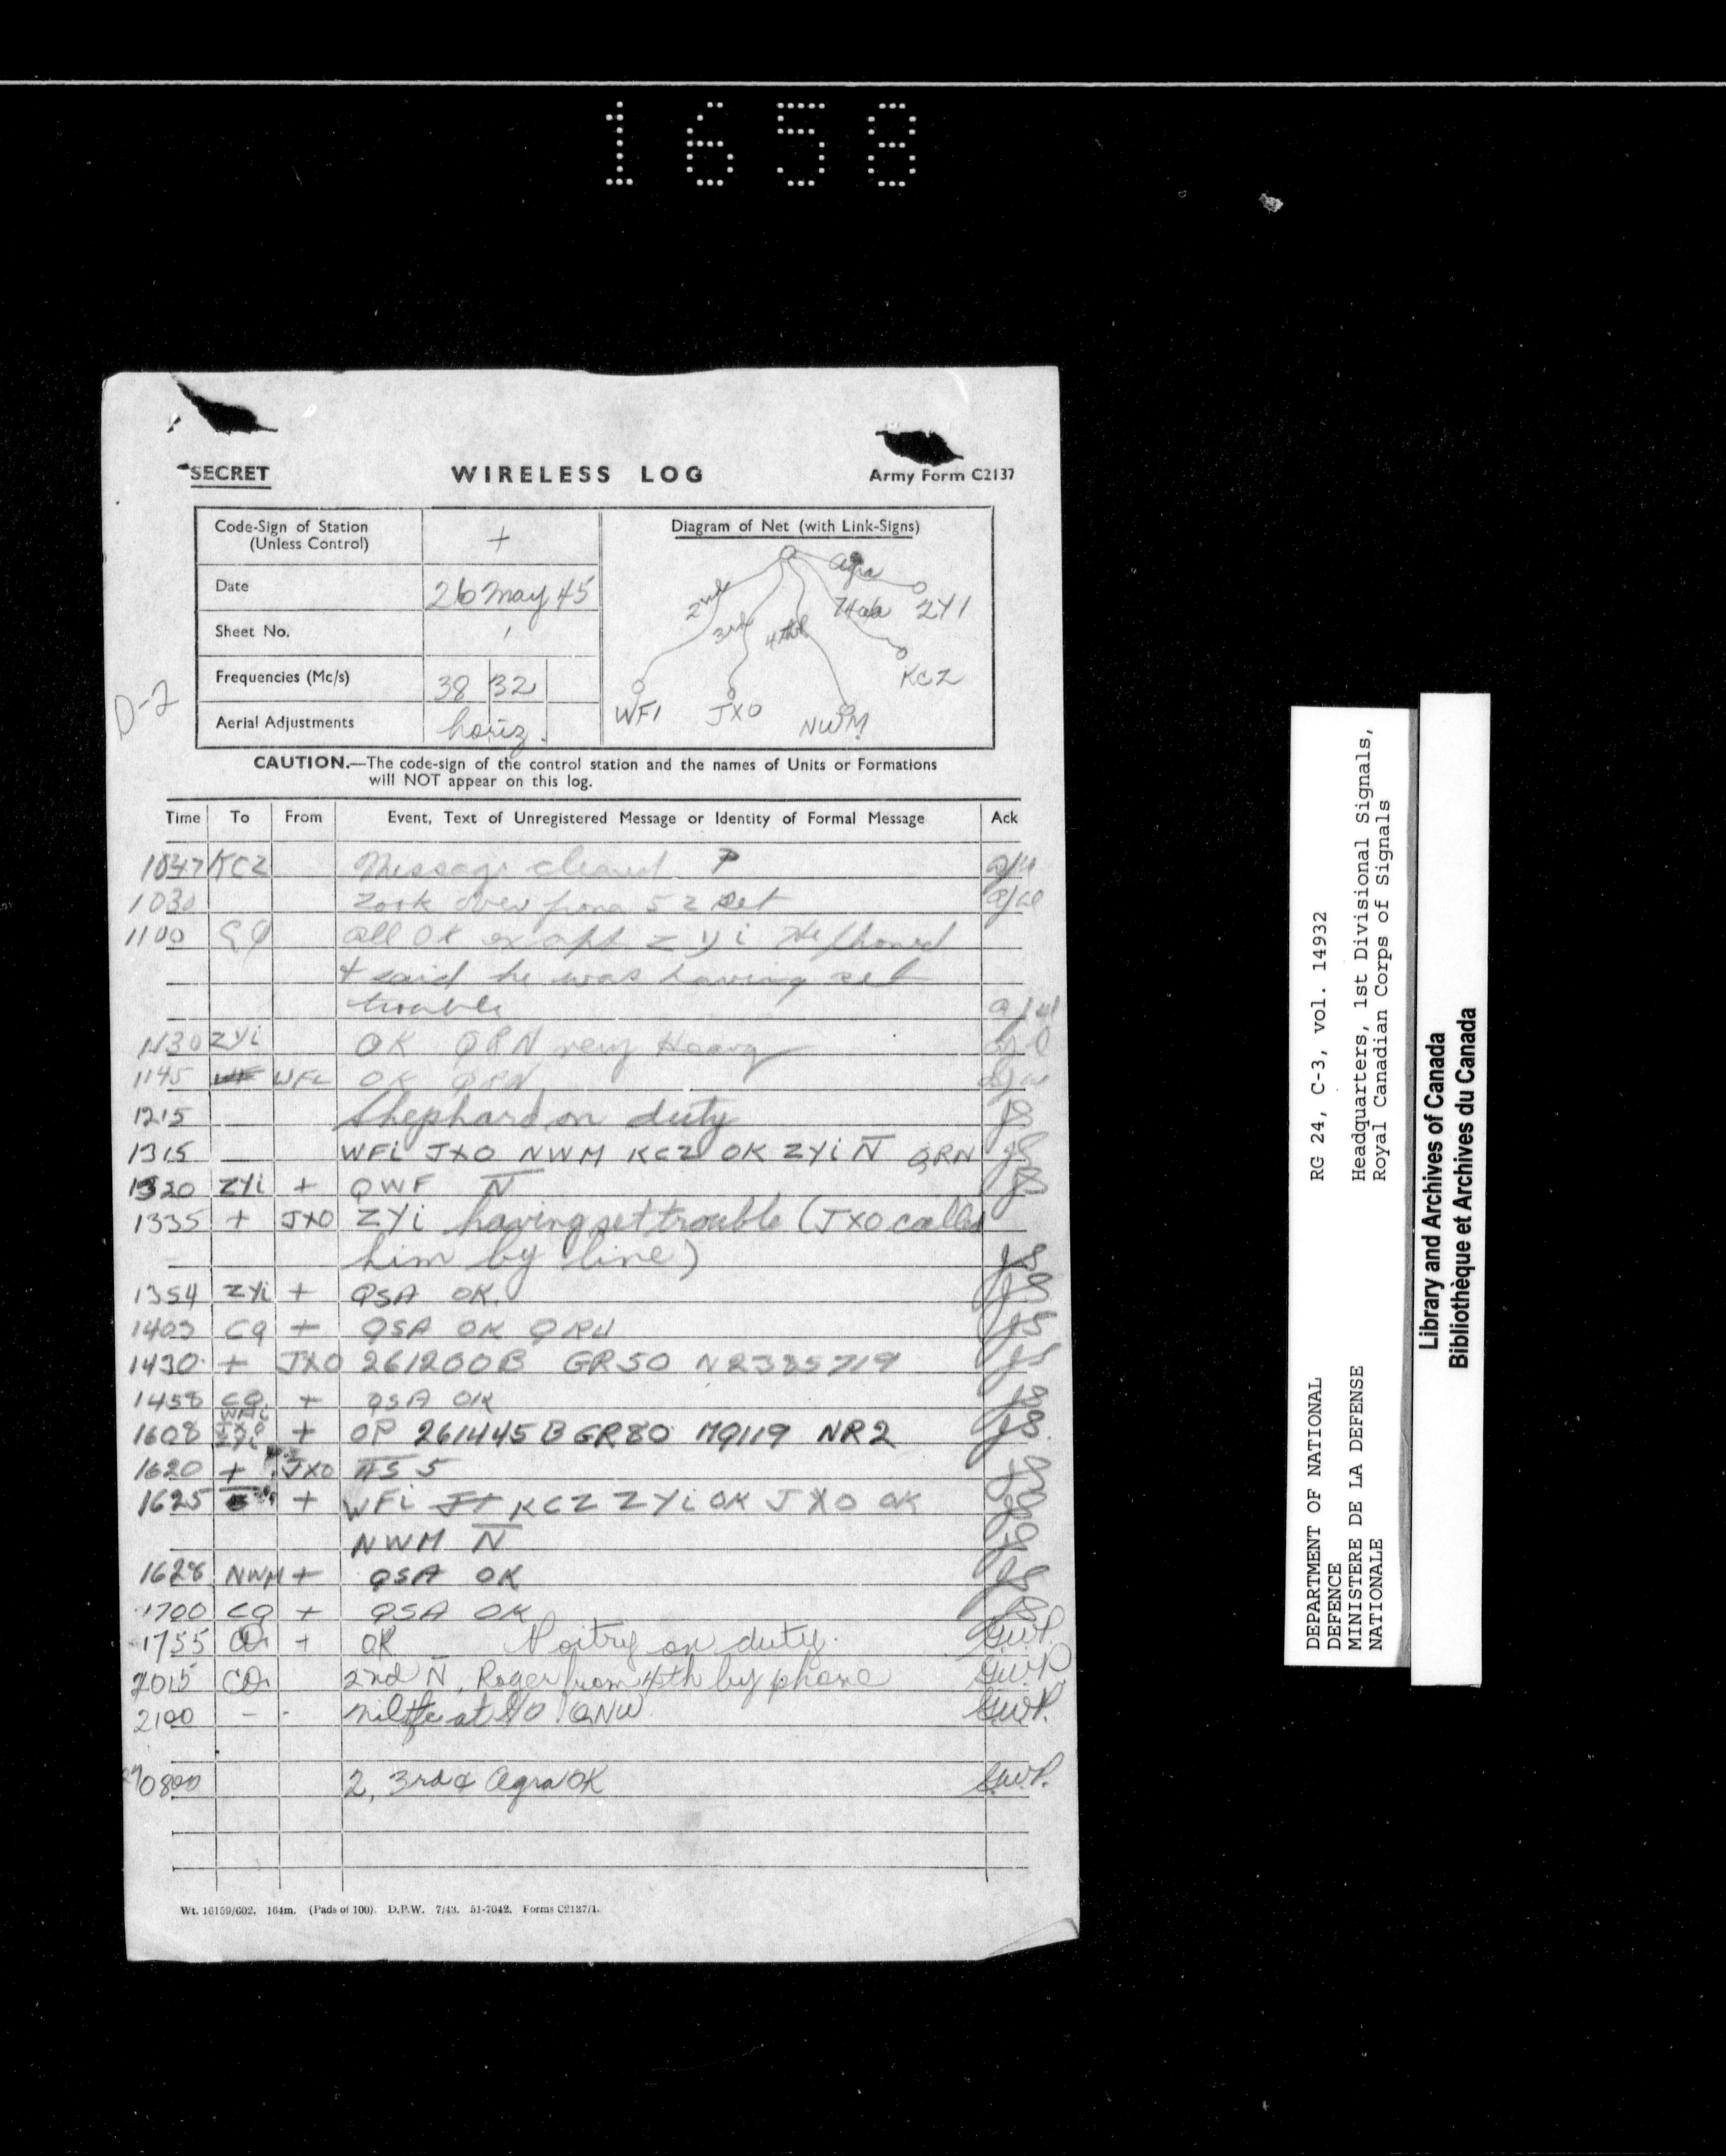 1658
SECRET
WIRELESS LOG
Army Form C2137
Code-Sign of Station
(Unless Control)
+
Date
26 May 45
Sheet No.
1
Frequencies (Mc/s)
38 32
Aerial Adjustments
horiz.
D-2
Diagram of Net (with Link-Signs)
2nd
3rd
4th
Haa
Agra
WFI
JXO
NWM
KCZ
ZYI
CAUTION.—The code-sign of the control station and the names of Units or Formations
will NOT appear on this log.
Time To From Event, Text of Unregistered Message or Identity of Formal Message Ack
1047 KCZ Message cleared
1030 Took over from 52 set
1100 CQ all OK except ZYi He phoned
+ said he was having set
trouble
1130 ZYi OK QRN very Heavy
1145 WFi OK QRN
1215 Shephard on duty JS
1315 WFi JXO NWM KCZ OK ZYi N̅ QRN JS
1320 ZYi + QWF N̅ JS
1335 + JXO ZYi having set trouble (JXO called
him by line) JS
1354 ZYi + QSA OK. JS
1403 CQ + QSA OK QRU JS
1430 + JXO 261200B GR50 JS
1458 CQ + QSA OK JS
1608 + OP 261445B GR80 M9119 NR2 JS.
1620 + JXO JS
1625 + WFi KCZ ZYi OK JXO OK JS
NWM N̅ JS
1628 NWM + QSA OK JS
1700 CQ + QSA OK JS
1755 CQ + OK on duty. G.W.P.
2015 CQ 2nd N̅, Roger from 4th by phone G.W.P.
2100 - - G.W.P.
0800 2, 3rd & Agra OK G.W.P.
Wt. 16159/602. 164m. (Pads of 100). D.P.W. 7/43. 51-7042. Forms C2137/1.
DEPARTMENT OF NATIONAL
DEFENCE
MINISTERE DE LA DEFENSE
NATIONALE
RG 24, C-3, vol. 14932
Headquarters, 1st Divisional Signals,
Royal Canadian Corps of Signals
Library and Archives of Canada
Bibliothèque et Archives du Canada